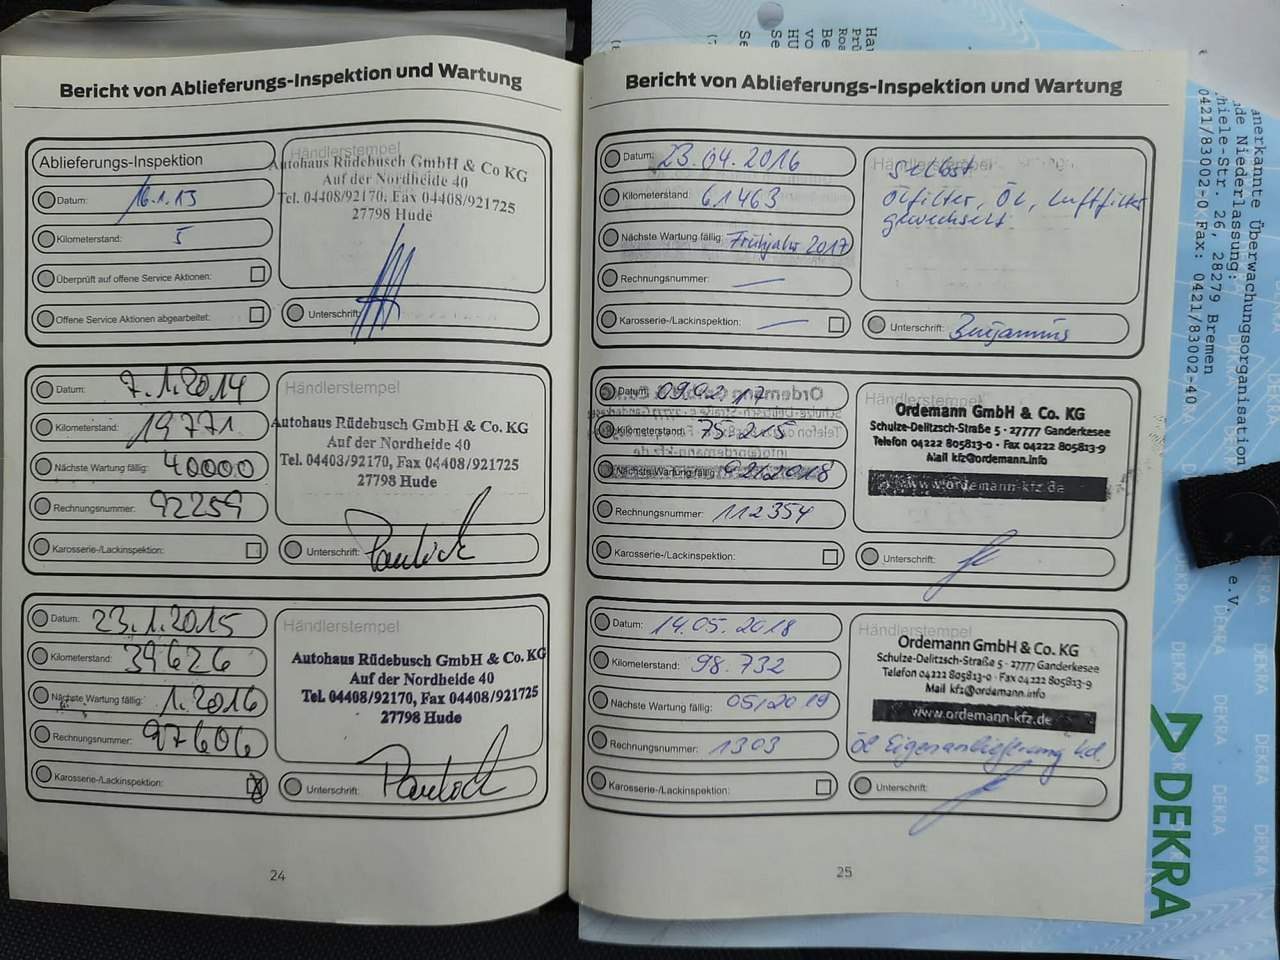 Bericht von Ablieferungs-Inspektion und Wartung
Ablieferungs-Inspektion
Datum: 16.1.13
Kilometerstand: 5
Überprüft auf offene Service Aktionen:
Offene Service Aktionen abgearbeitet:
Händlerstempel
Autohaus Rüdebusch GmbH & Co KG
Auf der Nordheide 40
Tel. 04408/92170, Fax 04408/921725
27798 Hude
Unterschrift:
Datum: 7.1.2014
Kilometerstand: 19771
Nächste Wartung fällig: 40000
Rechnungsnummer: 92259
Karosserie-/Lackinspektion:
Händlerstempel
Autohaus Rüdebusch GmbH & Co. KG
Auf der Nordheide 40
Tel. 04408/92170, Fax 04408/921725
27798 Hude
Unterschrift:
Datum: 23.1.2015
Kilometerstand: 39626
Nächste Wartung fällig: 1.2016
Rechnungsnummer: 97606
Karosserie-/Lackinspektion: X
Händlerstempel
Autohaus Rüdebusch GmbH & Co. KG
Auf der Nordheide 40
Tel. 04408/92170, Fax 04408/921725
27798 Hude
Unterschrift:
24
Bericht von Ablieferungs-Inspektion und Wartung
Datum: 23.04.2016
Kilometerstand: 61463
Nächste Wartung fällig: Frühjahr 2017
Rechnungsnummer: —
Karosserie-/Lackinspektion: —
Händlerstempel
selbst
Ölfilter, Öl, Luftfilter
gewechselt
Unterschrift:
Datum: 09.02.17
Kilometerstand: 75.215
Nächste Wartung fällig: 02/2018
Rechnungsnummer: 112354
Karosserie-/Lackinspektion:
Händlerstempel
Ordemann GmbH & Co. KG
Schulze-Delitzsch-Straße 5 · 27777 Ganderkesee
Telefon 04222 805813-0 · Fax 04222 805813-9
Mail kfz@ordemann.info
www.ordemann-kfz.de
Unterschrift:
Datum: 14.05.2018
Kilometerstand: 98.732
Nächste Wartung fällig: 05/2019
Rechnungsnummer: 1303
Karosserie-/Lackinspektion:
Händlerstempel
Ordemann GmbH & Co. KG
Schulze-Delitzsch-Straße 5 · 27777 Ganderkesee
Telefon 04222 805813-0 · Fax 04222 805813-9
Mail kfz@ordemann.info
www.ordemann-kfz.de
Öl Eigenanlieferung Kd.
Unterschrift:
25
anerkannte Überwachungsorganisation
Niederlassung:
Str. 26, 28279 Bremen
0421/83002-0 Fax: 0421/83002-40
e.V.
DEKRA